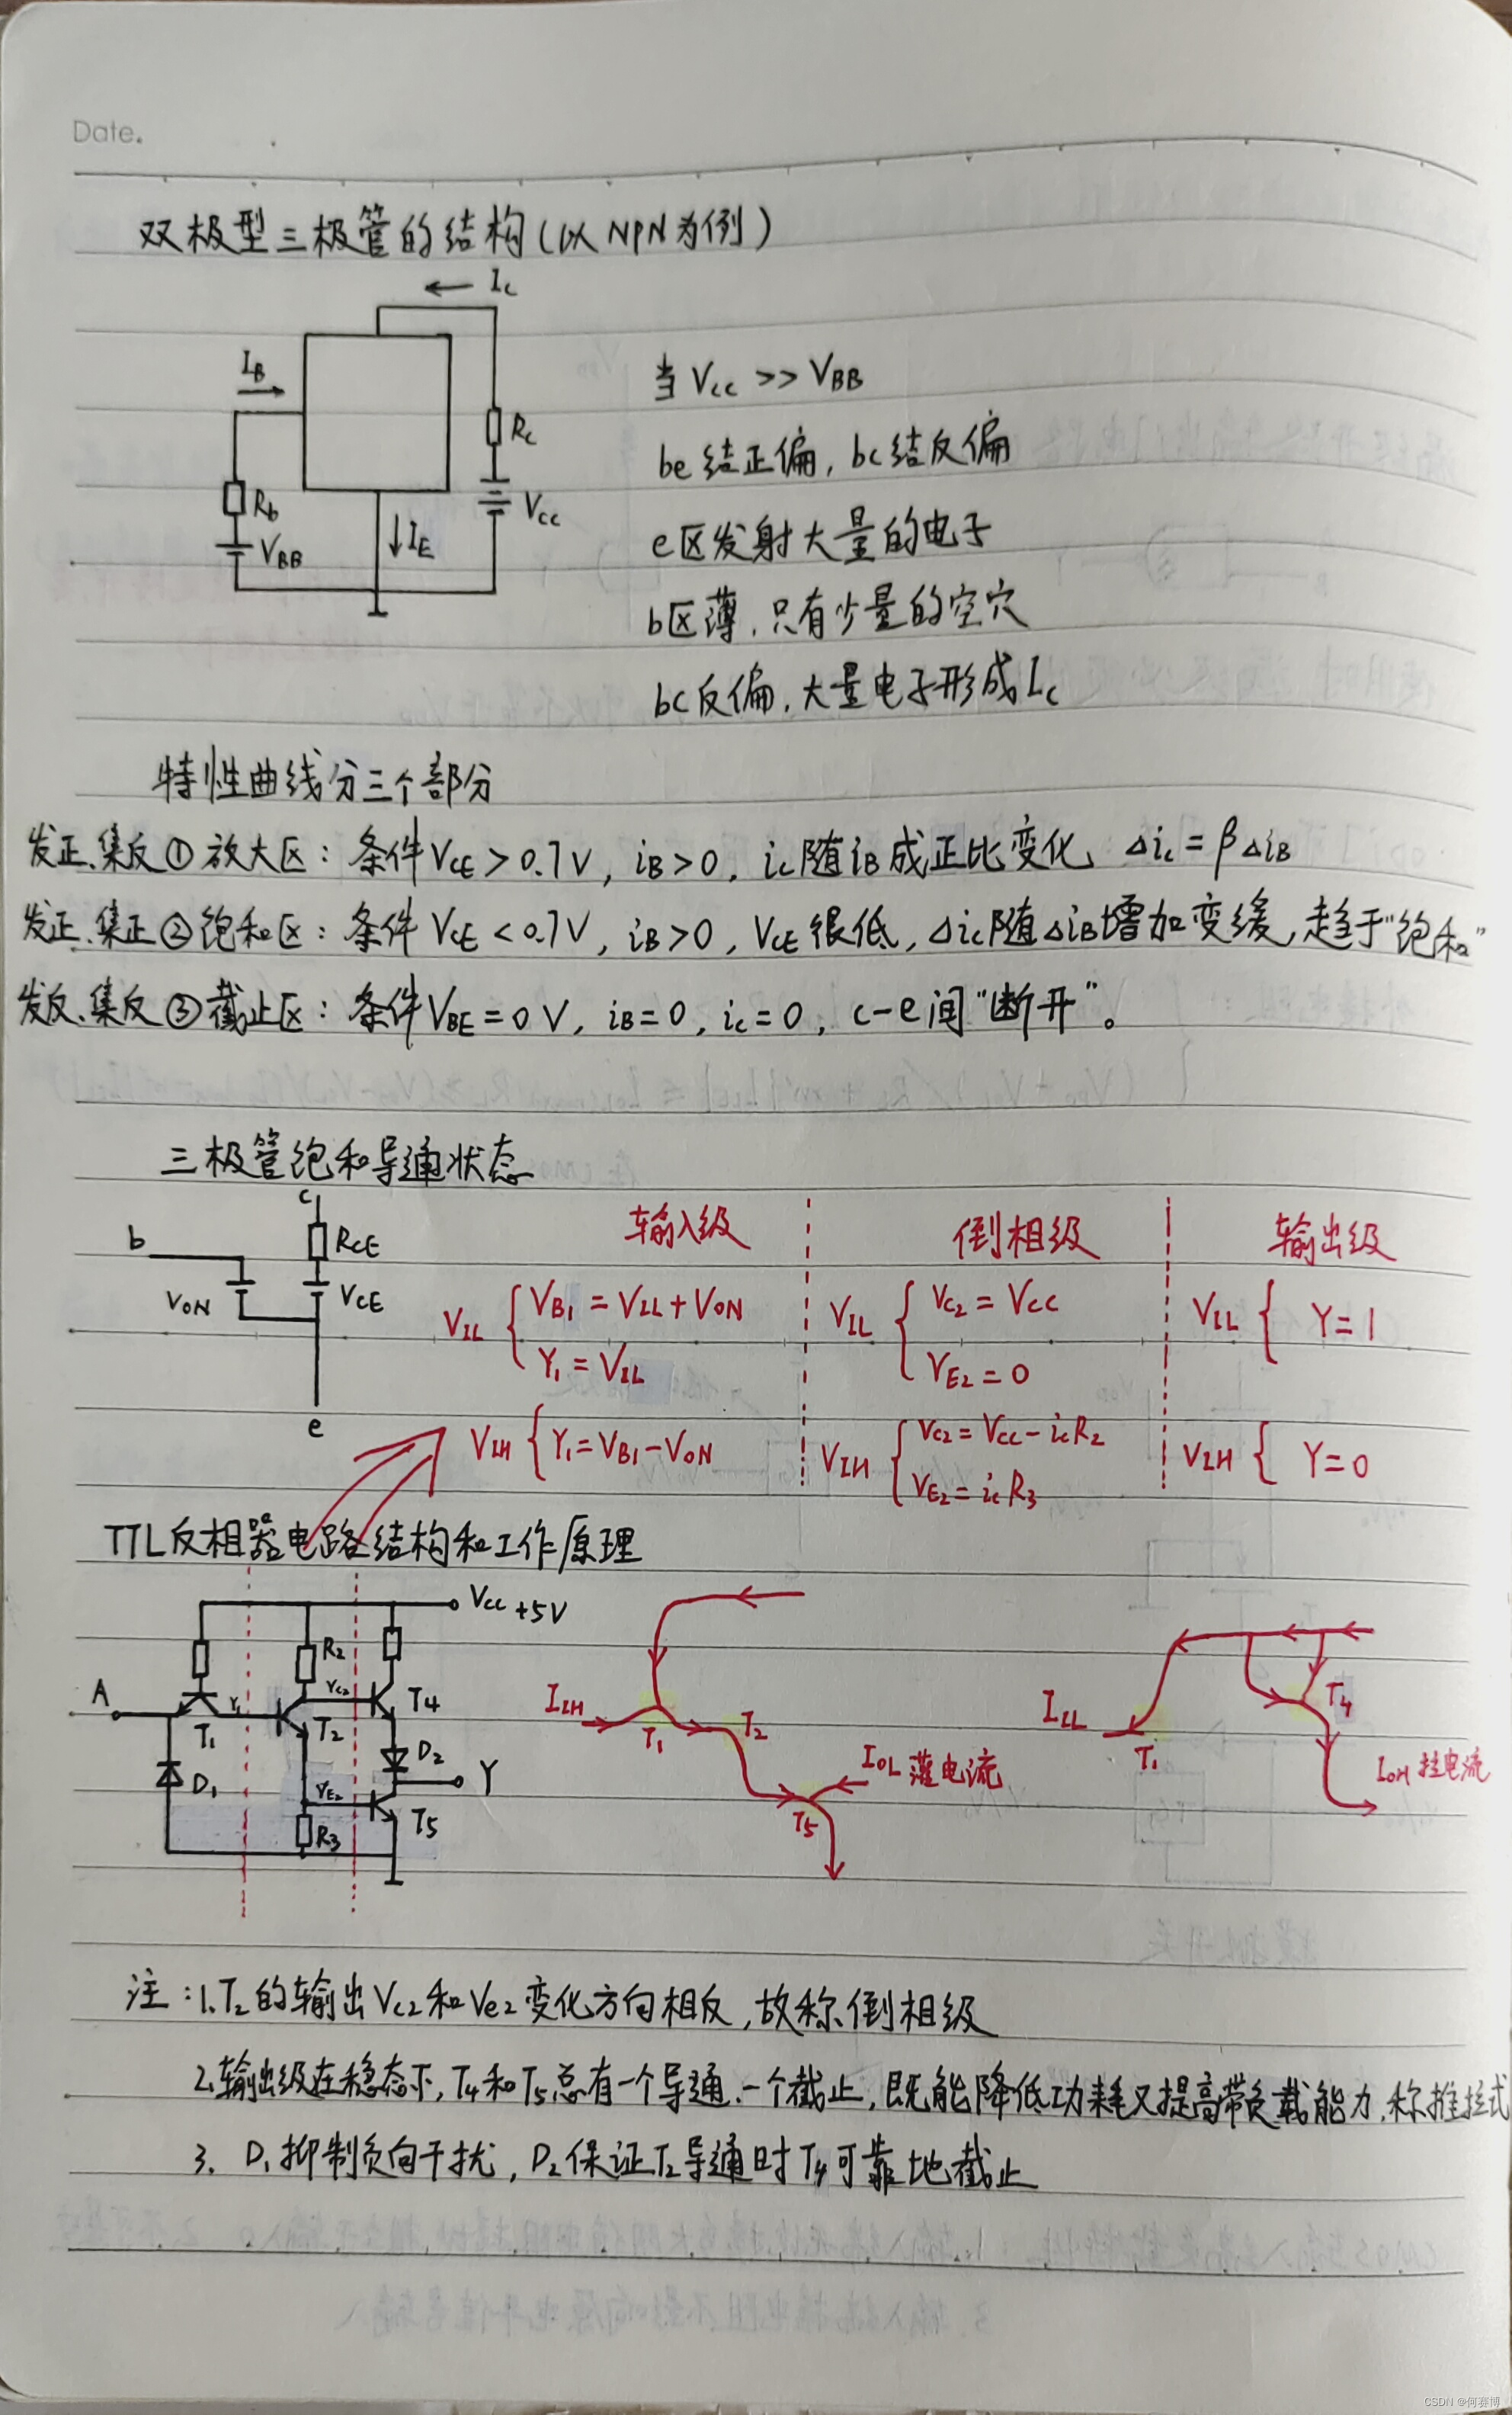 Date.
双极型三极管的结构(以NPN为例)
Ic
IB
Rc
Rb
Vcc
VBB
IE
当 Vcc >> VBB
be结正偏, bc结反偏
e区发射大量的电子
b区薄,只有少量的空穴
bc反偏,大量电子形成Ic
特性曲线分三个部分
发正.集反 ① 放大区: 条件 VCE > 0.7V, iB>0, ic随iB成正比变化 Δic = βΔiB
发正.集正 ② 饱和区: 条件 VCE < 0.7V, iB>0, VCE很低, Δic随ΔiB增加变缓,趋于"饱和"
发反.集反 ③ 截止区: 条件 VBE = 0V, iB=0, ic=0, c-e间"断开"。
三极管饱和导通状态
c
b
RCE
VON
VCE
e
输入级
倒相级
输出级
VIL { VB1 = VIL + VON
Y1 = VIL
VIL { VC2 = VCC
VE2 = 0
VIL { Y = 1
VIH { Y1 = VB1 - VON
VIH { VC2 = VCC - icR2
VE2 = icR3
VIH { Y = 0
TTL反相器电路结构和工作原理
Vcc +5V
R2
A
Y1
VC2
T1
T2
T4
D1
D2
Y
VE2
R3
T5
IIH
T1
T2
IOL 灌电流
T5
IIL
T1
T4
IOH 拉电流
注:1.T2的输出Vc2和Ve2变化方向相反,故称倒相级
2.输出级在稳态下,T4和T5总有一个导通.一个截止,既能降低功耗又提高带负载能力,称推拉式
3. D1抑制负向干扰, D2保证T2导通时T4可靠地截止
CSDN @何赛博